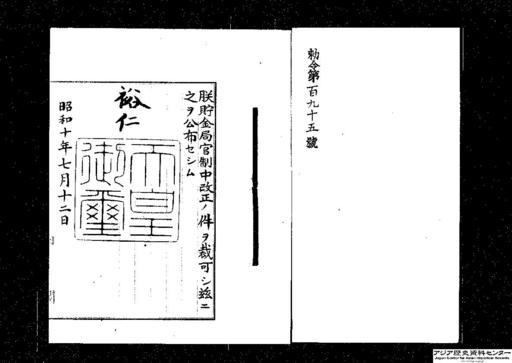 勅令第百九十五號
朕貯金局官制中改正ノ件ヲ裁可シ茲ニ
之ヲ公布セシム
裕仁
天皇御璽
昭和十年七月十二日
アジア歴史資料センター
Japan Center for Asian Historical Records